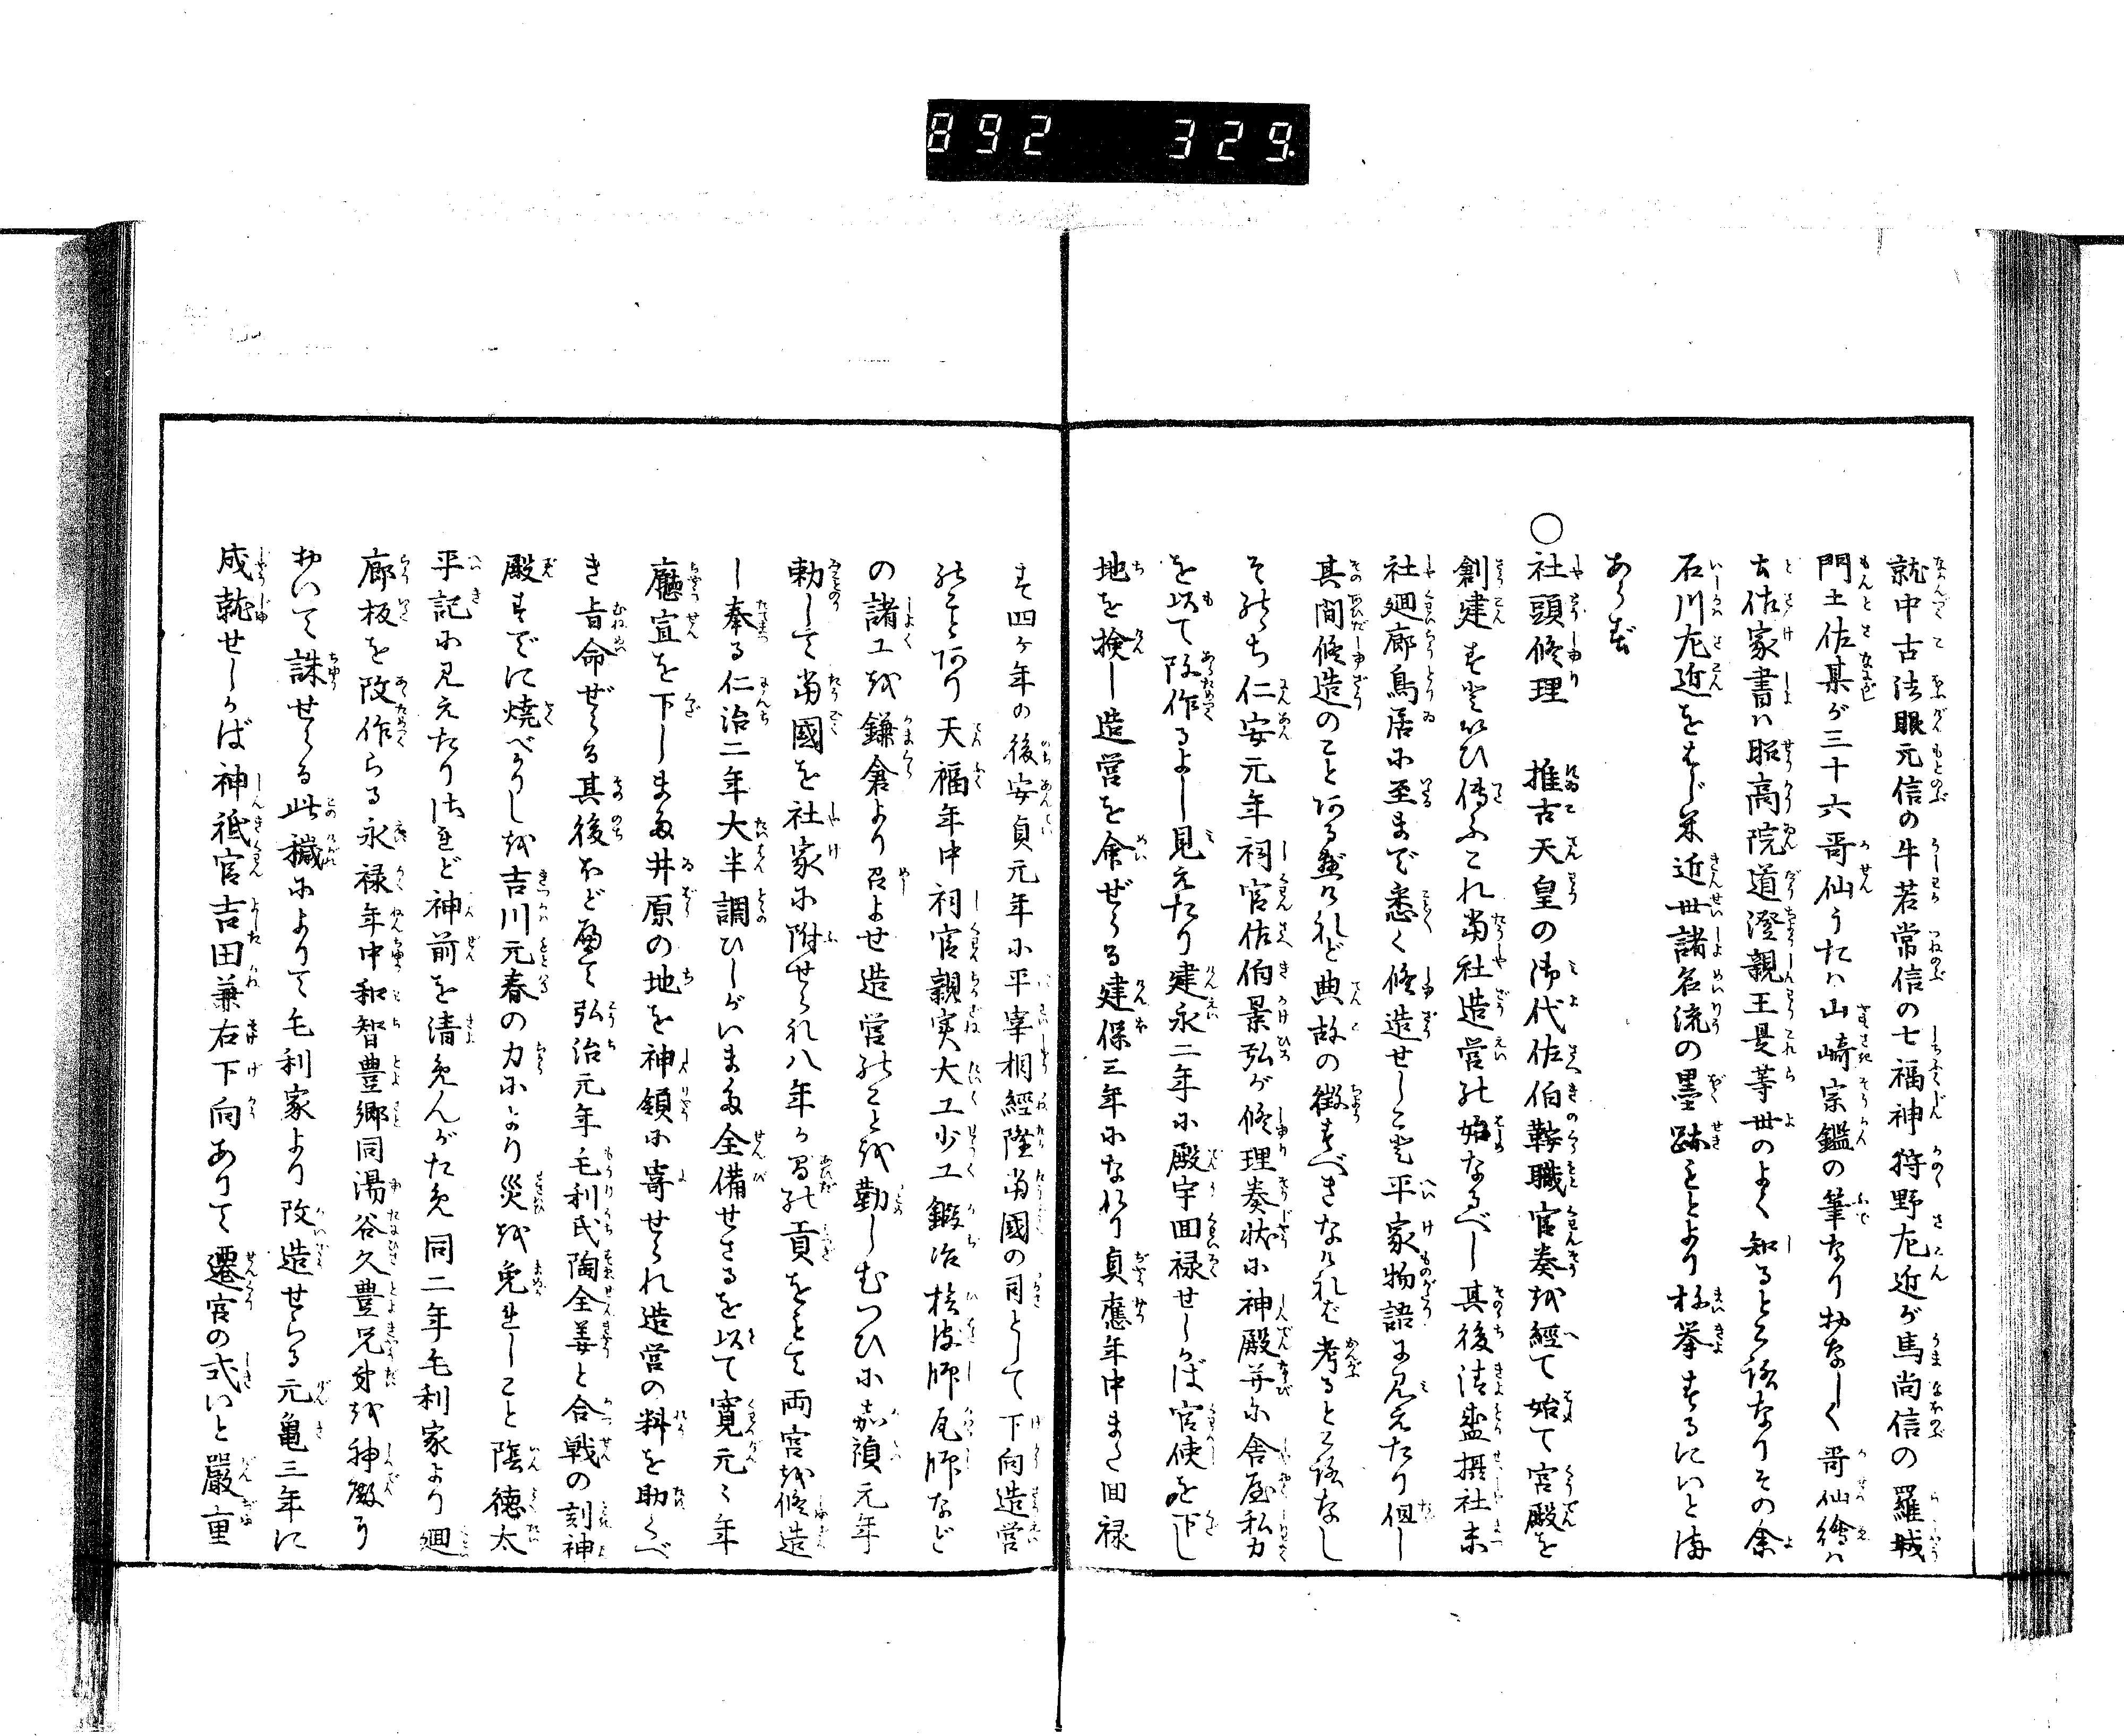 892 329.
就中古法眼元信の牛若常信の七福神狩野左近が馬尚信の羅城
門土佐某が三十六哥仙うたハ山崎宗鑑の筆なり物なしく哥仙繪ハ
土佐家書ハ昭高院道澄親王是等世のよく知るところなりその余
石川左近をはじめ近世諸名流の墨跡もとより枚挙するにいとま
あらず
○社頭修理 推古天皇の御代佐伯鞍職官奏を經て始て宮殿を
創建すといひ傳ふこれ當社造営の始なるべし其後清盛摂社末
社廻廊鳥居に至まで悉く修造せしこと平家物語に見えたり但し
其間修造のことあるべけれど典故の徴すべきなければ考るところなし
そのゝち仁安元年祠官佐伯景弘が修理奏状に神殿并に舎屋私力
を以て改作るよし見えたり建永二年に殿宇回禄せしかば官使を下し
地を検し造営を命ぜらる建保三年になれり貞應年中また回禄
す四ヶ年の後安貞元年に平宰相經隆當國の司として下向造営
のことあり天福年中祠官親実大工少工鍛冶桧皮師瓦師など
の諸工を鎌倉より召よせ造営のことを勤しむつひに嘉禎元年
勅して當國を社家に附せられ八年の間の貢をもて両宮を修造
し奉る仁治二年大半調ひしがいまだ全備せさるを以て寛元々年
廳宣を下しまた井原の地を神領に寄せられ造営の料を助くべ
き旨命ぜらる其後ほど歴て弘治元年毛利氏陶全姜と合戦の刻神
殿すでに焼べかりしを吉川元春の力により災を免れしこと陰徳太
平記に見えたりされど神前を清めんがため同二年毛利家より廻
廊板を改作らる永禄年中和智豊郷同湯谷久豊兄弟を神殿に
おいて誅せらる此穢によりて毛利家より改造せらる元亀三年に
成就せしかば神祇官吉田兼右下向ありて遷宮の式いと嚴重